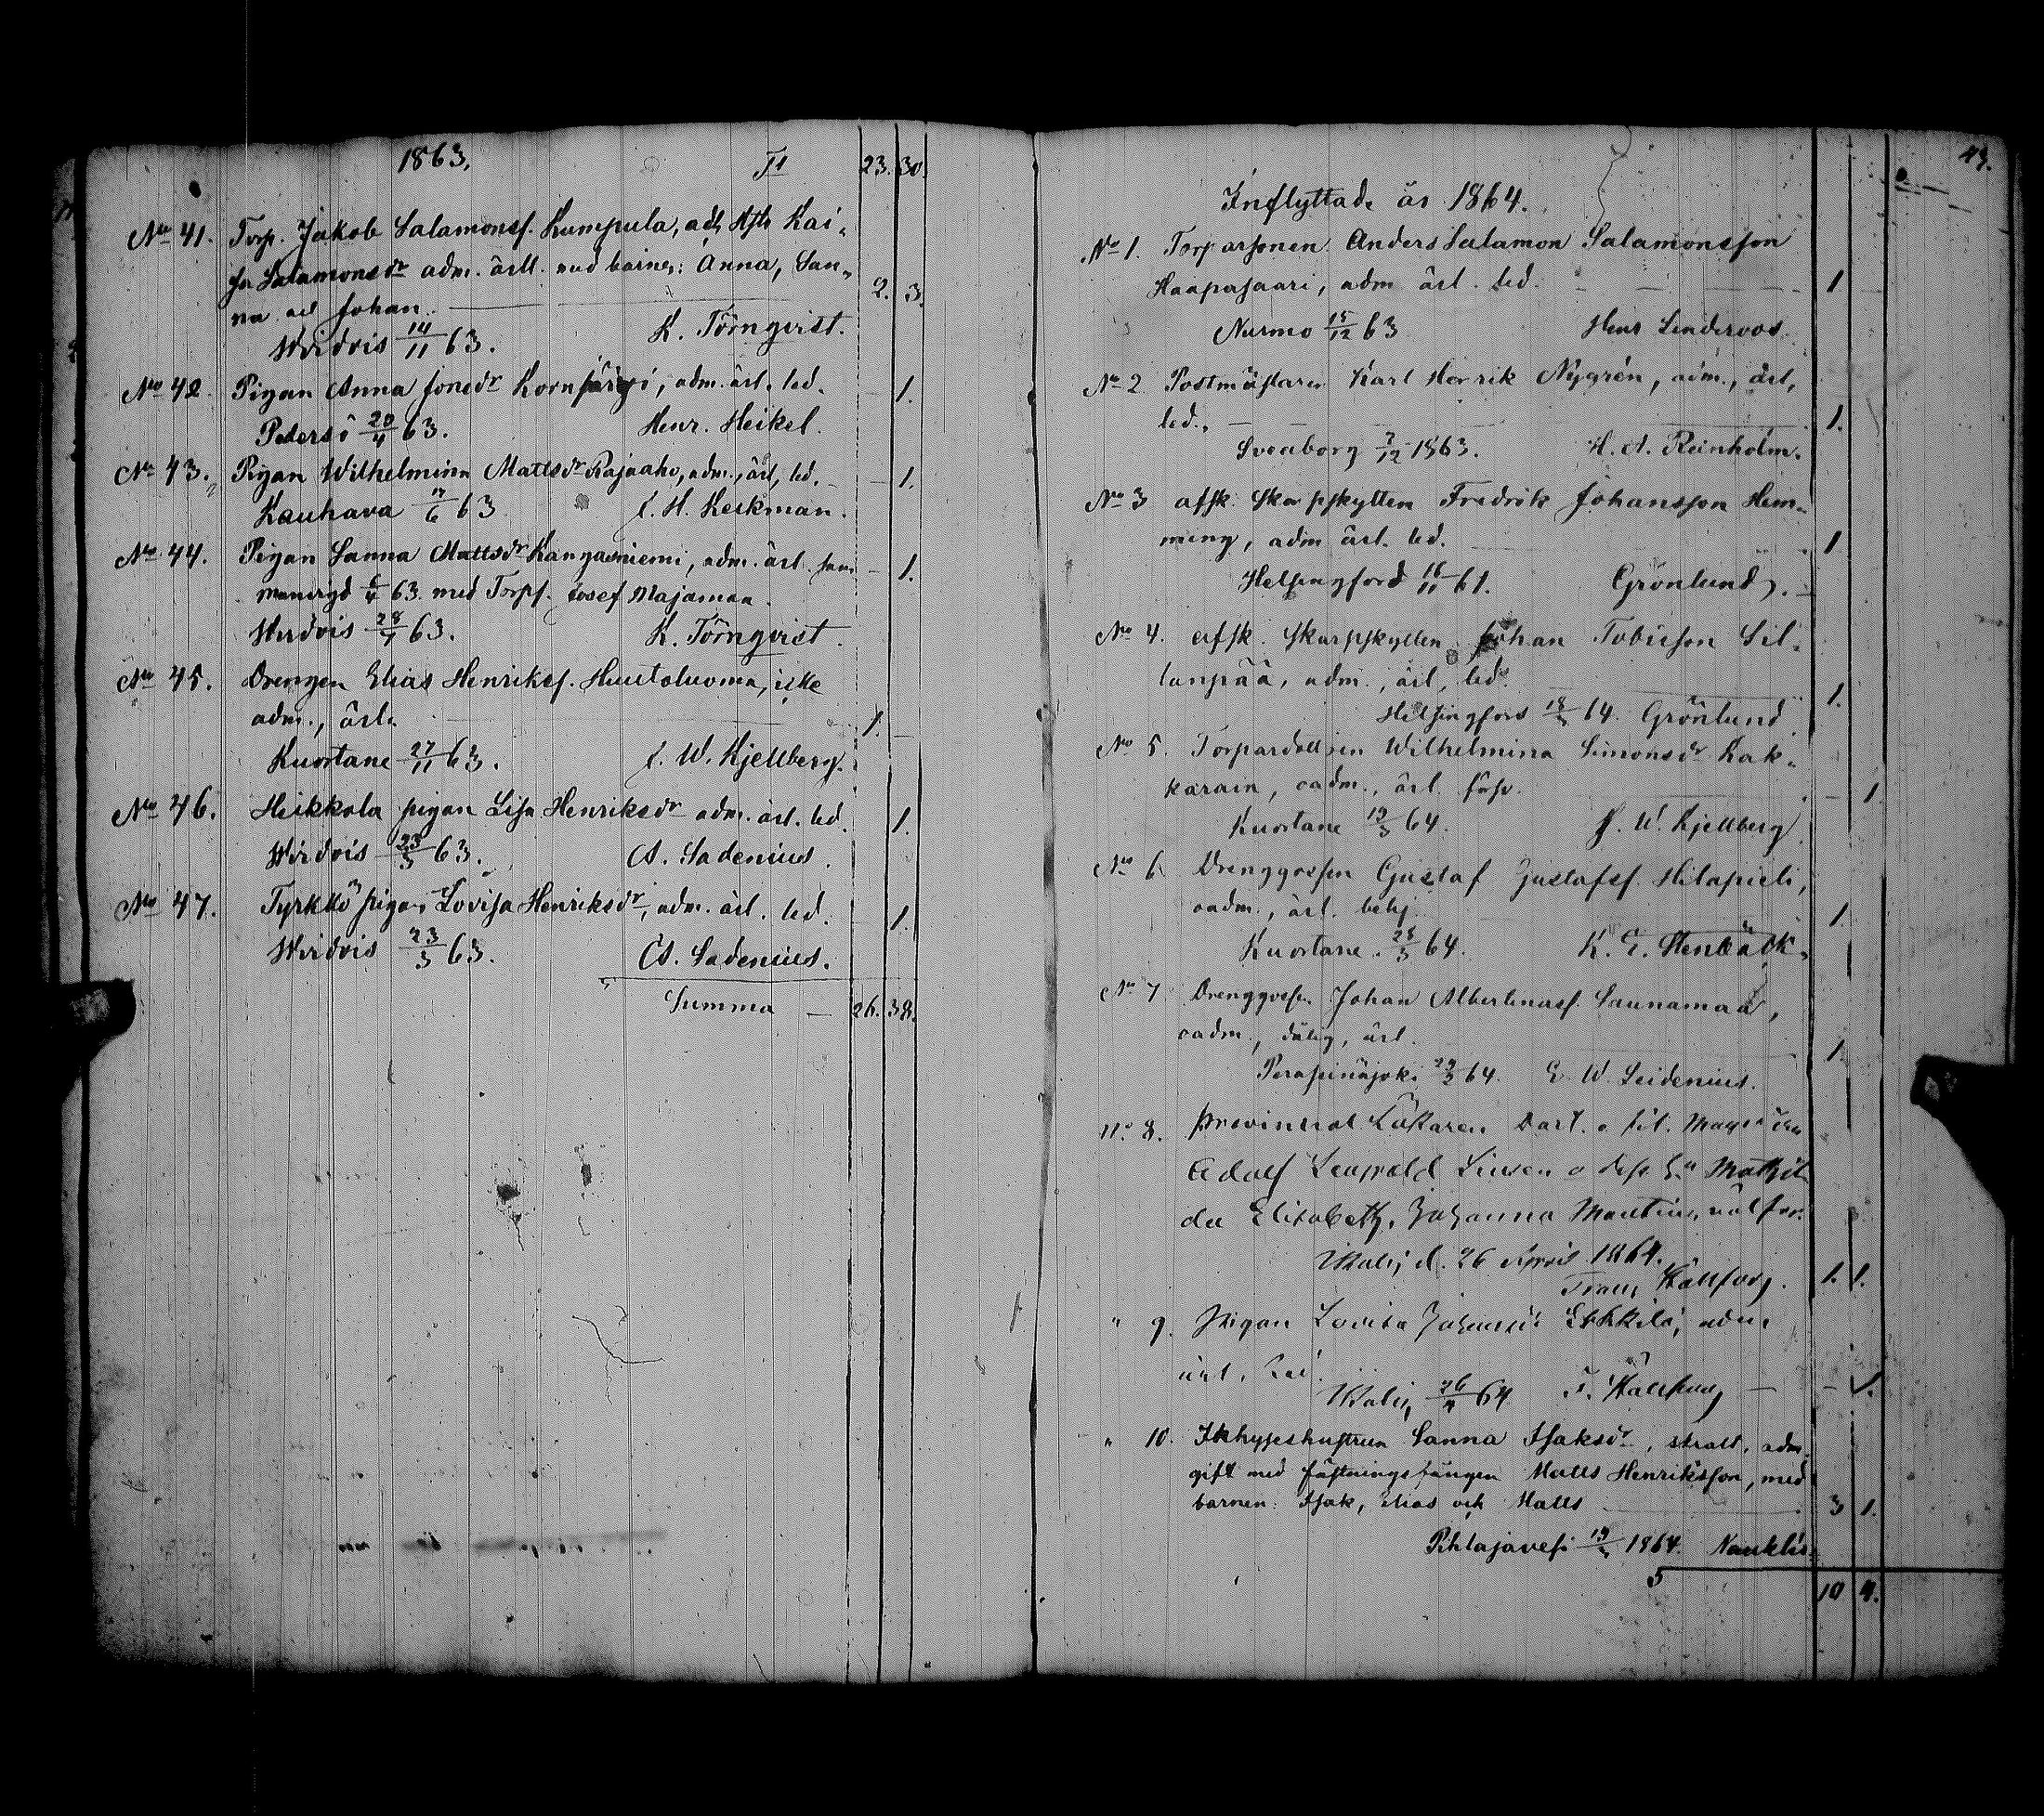 1863. Tt 23. 30.
No 41. Torp. Jakob Salamonsf. Kumpula, och Hstr Kai-
sa Salamonsdr adm. ärl. med barnen: Anna, San-
na och Johan. 2. 3.
Wirdois 14/11 63. K. Törnqvist.
No 42. Pigan Anna Jonsdr, adm. ärl. led. 1.
Petersö 20/4 63. Henr. Heikel.
No 43. Pigan Wilhelmina Mattsdr Rajaaho, adm., ärl, led. 1.
Kauhava 17/6 63 C. H. Keckman.
No 44. Pigan Sanna Mattsdr Kangasniemi, adm. ärl. sam- 1.
manvigd 63. med Torpf. Josef Majamaa.
Wirdois 28/4 63. K. Törnqvist.
No 45. Drengen Elias Henriksf. Huutoluoma, icke
adm., ärl. 1.
Kuortane 27/11 63. J. W. Kjellberg.
No 46. Heikkola pigan Lisa Henriksdr adm. ärl. led. 1.
Wirdois 23/3 63. A. Sadenius.
No 47. Tyrkkö pigan Lovisa Henriksdr, adm. ärl. led. 1.
Wirdois 23/3 63. A. Sadenius.
Summa — 26. 38.
43.
Inflyttade år 1864.
No 1. Torparsonen Anders Salamon Salamonsson
Haapasaari, adm ärl. led. 1
Nurmo 15/12 63 Henr
No 2 Postmästaren Karl Henrik Nygrén, adm., ärl,
led., 1.
Sveaborg 7/12 1863. H. A. Reinholm.
No 3 afsk. Skarpskytten Fredrik Johansson Hem-
ming, adm ärl. led. 1
Helsingfors 16/11 61. Grönlund.
No 4. afsk. Skarpskytten Johan Tobisson Sil-
lanpää, adm., ärl, led. 1.
Helsingfors 18/3 64. Grönlund
No 5. Torpardottren Wilhelmina Simonsdr Kak-
karain, oadm., ärl. 1.
Kuortane 19/3 64. J. W. Kjellberg
No 6 Drenggossen Gustaf Gustafsf. Hilapieli,
oadm., ärl. 1.
Kuortane 28/3 64. K. E. Stenbäck.
No 7 Drenggossen Johan Albertinusf. Saunamaa,
oadm., dålig, ärl. 1.
Peräseinäjoki 64. E. W. Leidenius.
No 8. Provincial Läkaren
Adolf Leopold Mathil-
da Elisabeth, Johanna
d. 26 April 1864.
Frans 1. 1.
" 9. Pigan Lovisa adm
ärl. led.
26/4 64 F. — 1.
" 10. Itshyyshustrun Sanna Isaksdr, straff. adm.
gift med fästningsfången Matts Henriksson, med
barnen: Isak, Elias och Matts 3 1.
Pihlajavesi 1864.
S 10 4.